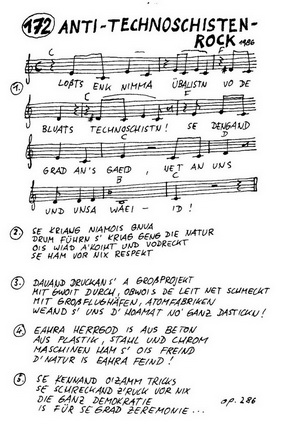 172 ANTI-TECHNOSCHISTEN-
ROCK 1986
C F
1. LOẞTS ENK NIMMA ÜBALISTN VO DE
C F
BLUATS TECHNOSCHISTN! SE DENGAND
C D
GRAD AN'S GAED, NET AN UNS
B C
UND UNSA WÄEI - ID!
2. SE KRIANG NIAMOIS GNUA
DRUM FÜHRN S' KRIAG GENG DIE NATUR
OIS WIAD A'KOIHT UND VODRECKT
SE HAM VOR NIX RESPEKT
3. DAUAND DRUCKAN S' A GROẞPROJEKT
MIT GWOIT DURCH, OBWOIS DE LEIT NET SCHMECKT
MIT GROẞFLUGHÄFEN, ATOMFABRIKEN
WEAND S' UNS D' HOAMAT NO' GANZ DASTICKN!
4. EAHRA HERRGOD IS AUS BETON
AUS PLASTIK, STAHL UND CHROM
MASCHINEN HAM S' OIS FREIND
D'NATUR IS EAHRA FEIND!
5. SE KENNAND O'ZAMM TRICKS
SE SCHRECKAND Z'RUCK VOR NIX
DIE GANZ DEMOKRATIE op. 286
IS FÜR SE GRAD ZEREMONIE...